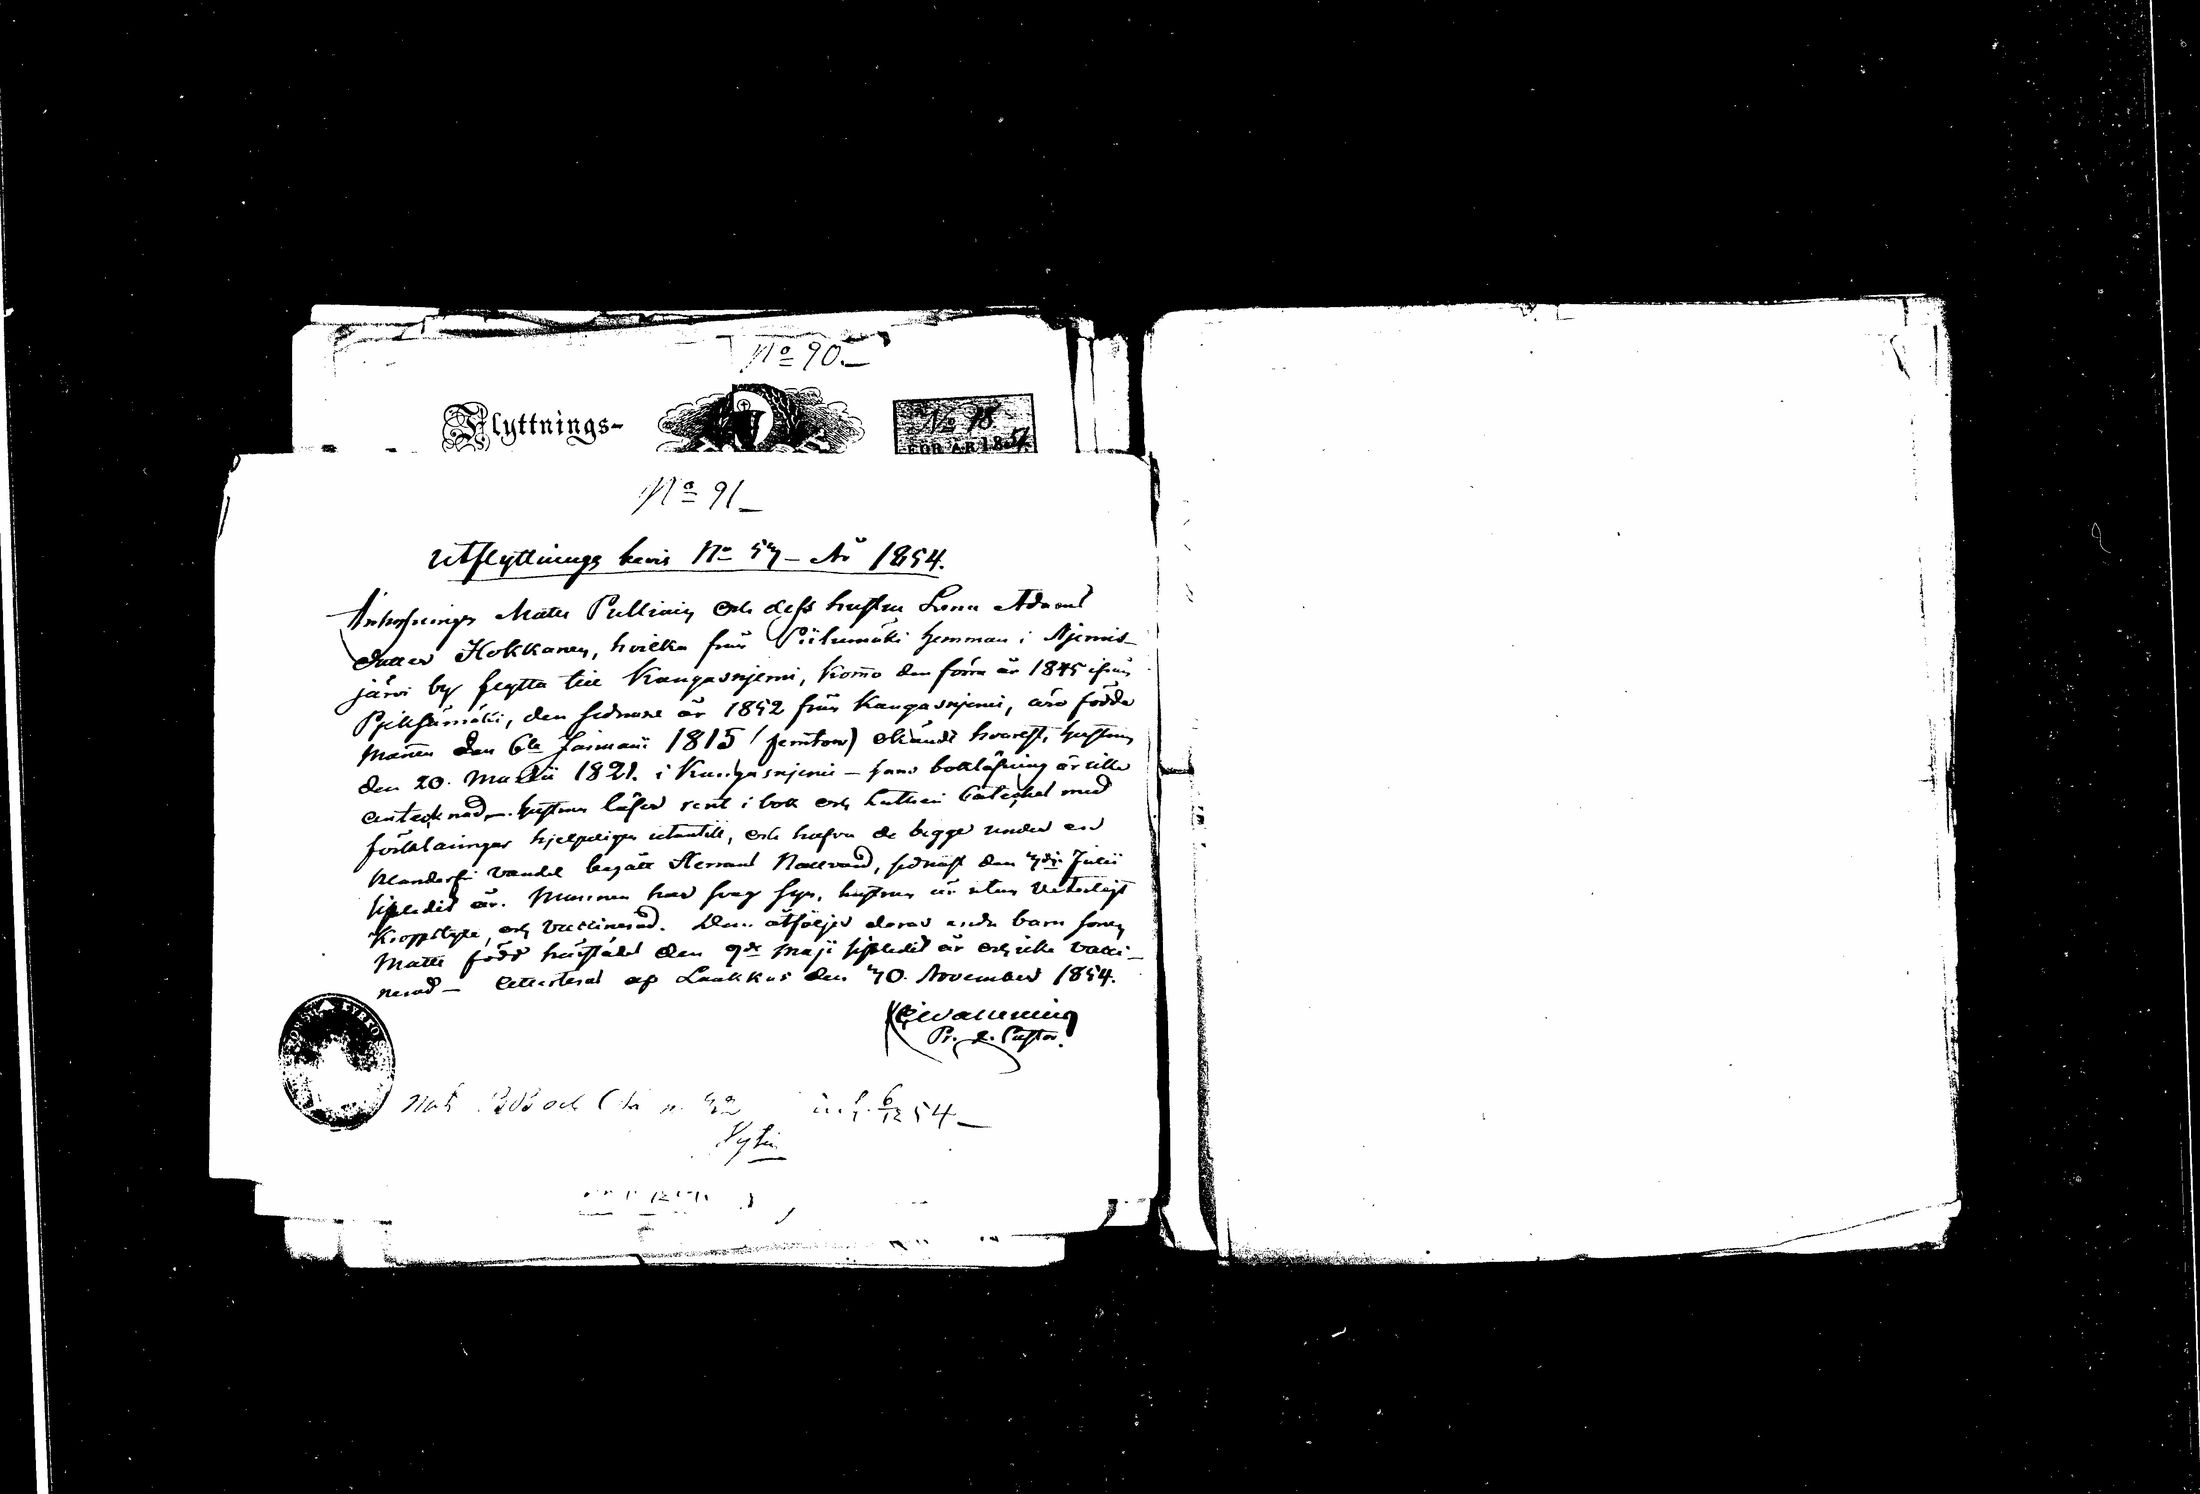 No 90.
Flyttnings-
No 18
FÖR ÅR 185
No 91
Utflyttnings bevis No 57 – År 1854.
Inhysingen Matts Pulliain och dess hustru Lena Adams
dotter Hokkanen, hvilka från Piilumäki hemman i Njemis-
järvi by flytta till Kangasnjemi, kommo den förra år 1845 ifrån
Pjeksämäki, den sednare år 1852 från Kangasnjemi, äro födde
Mannen den 6te Januarii 1815 (femton) okändt hvarest, hustrun
den 20. Martii 1821. i Kangasnjemi – hans bokläsning är icke
antecknad – hustrun läser rent i bok och Lutheri Cateches med
förklaringar hjelpeligen utantill, och hafva de begge under en
klanderfri vandel begått Herrans Nattvard, sednast den Julii
sistledit år. Mannen har svag syn, hustrun är utan veterligt
kroppslyte, och vaccinerad. Dem åtföljer deras enda barn sonen
Matts född härstädes den 9de Maji sistledit år och icke vacci-
nerad – Attesterat af Laukkas den 30. November 1854.
Pr. d. Pastor.
KYRKO
och 6/12 54